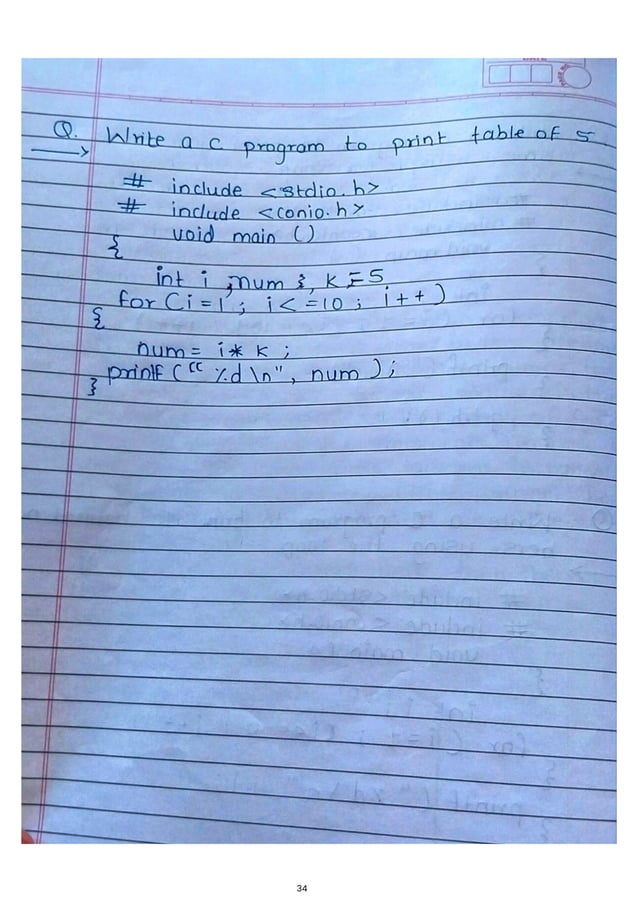 Q. Write a c program to print table of 5.
# include <stdio.h>
# include <conio.h>
void main ()
{
int i, num ;, K = 5
for (i = 1 ; i <= 10 ; i + + )
{
num = i * k ;
printf (“ %d \n", num ) ;
}
34